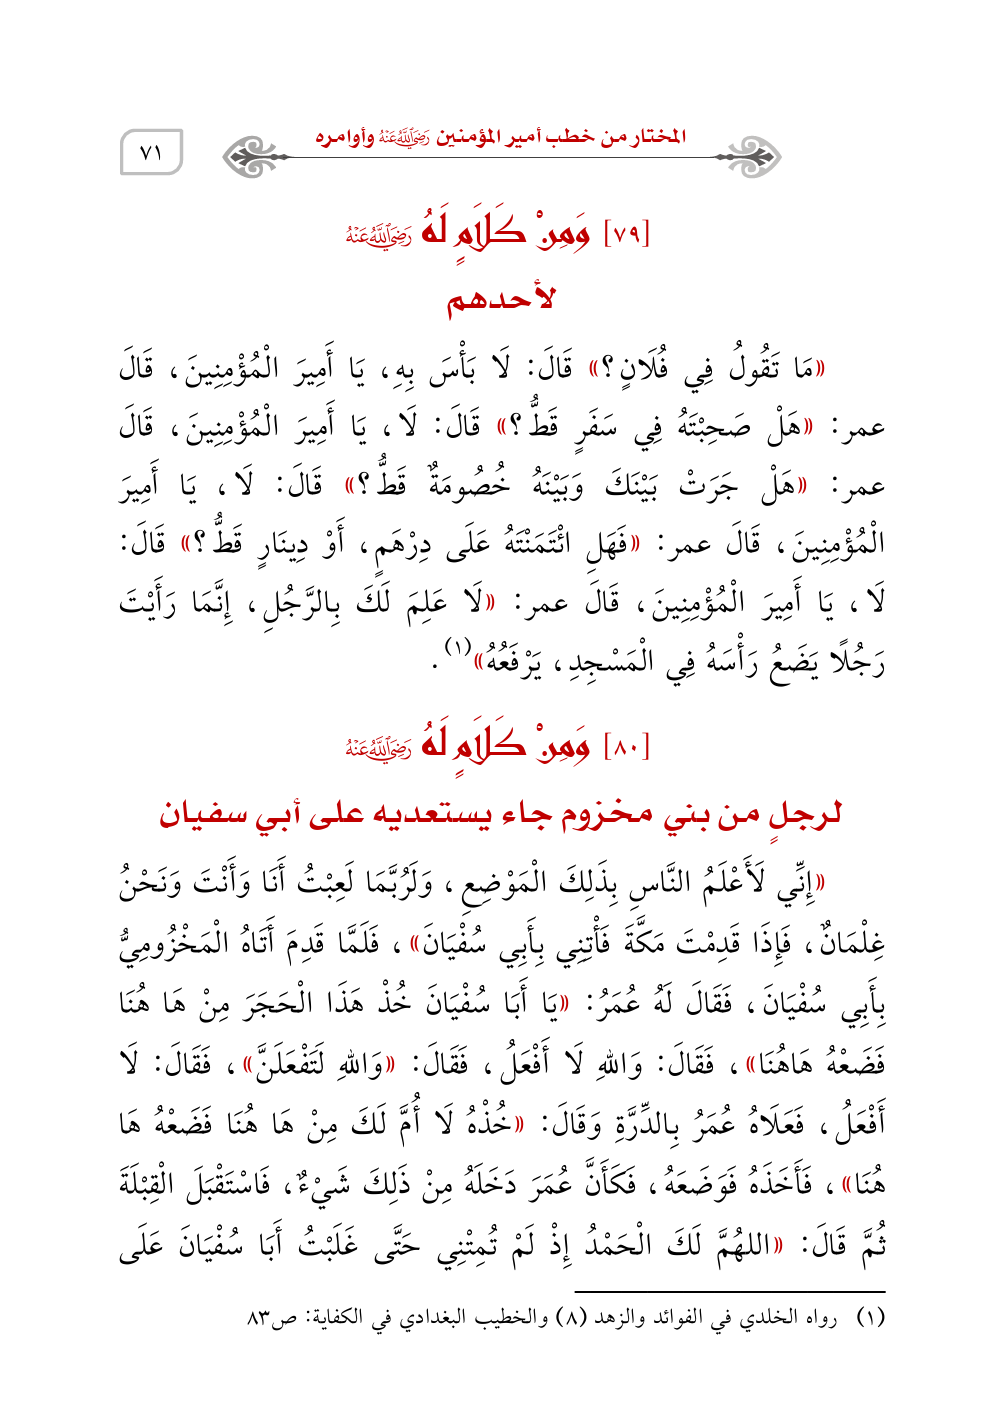 المختار من خطب أمير المؤمنين رَضِيَ اللَّهُ عَنْهُ وأوامره
٧١
[٧٩] وَمِنْ كَلَامٍ لَهُ رَضِيَ اللَّهُ عَنْهُ
لأحدهم
«مَا تَقُولُ فِي فُلَانٍ؟» قَالَ: لَا بَأْسَ بِهِ، يَا أَمِيرَ الْمُؤْمِنِينَ، قَالَ
عمر: «هَلْ صَحِبْتَهُ فِي سَفَرٍ قَطُّ؟» قَالَ: لَا، يَا أَمِيرَ الْمُؤْمِنِينَ، قَالَ
عمر: «هَلْ جَرَتْ بَيْنَكَ وَبَيْنَهُ خُصُومَةٌ قَطُّ؟» قَالَ: لَا، يَا أَمِيرَ
الْمُؤْمِنِينَ، قَالَ عمر: «فَهَلِ ائْتَمَنْتَهُ عَلَى دِرْهَمٍ، أَوْ دِينَارٍ قَطُّ؟» قَالَ:
لَا، يَا أَمِيرَ الْمُؤْمِنِينَ، قَالَ عمر: «لَا عَلِمَ لَكَ بِالرَّجُلِ، إِنَّمَا رَأَيْتَ
رَجُلًا يَضَعُ رَأْسَهُ فِي الْمَسْجِدِ، يَرْفَعُهُ»(١).
[٨٠] وَمِنْ كَلَامٍ لَهُ رَضِيَ اللَّهُ عَنْهُ
لرجلٍ من بني مخزوم جاء يستعديه على أبي سفيان
«إِنِّي لَأَعْلَمُ النَّاسِ بِذَلِكَ الْمَوْضِعِ، وَلَرُبَّمَا لَعِبْتُ أَنَا وَأَنْتَ وَنَحْنُ
غِلْمَانٌ، فَإِذَا قَدِمْتَ مَكَّةَ فَأْتِنِي بِأَبِي سُفْيَانَ»، فَلَمَّا قَدِمَ أَتَاهُ الْمَخْزُومِيُّ
بِأَبِي سُفْيَانَ، فَقَالَ لَهُ عُمَرُ: «يَا أَبَا سُفْيَانَ خُذْ هَذَا الْحَجَرَ مِنْ هَا هُنَا
فَضَعْهُ هَاهُنَا»، فَقَالَ: وَاللهِ لَا أَفْعَلُ، فَقَالَ: «وَاللهِ لَتَفْعَلَنَّ»، فَقَالَ: لَا
أَفْعَلُ، فَعَلَاهُ عُمَرُ بِالدِّرَّةِ وَقَالَ: «خُذْهُ لَا أُمَّ لَكَ مِنْ هَا هُنَا فَضَعْهُ هَا
هُنَا»، فَأَخَذَهُ فَوَضَعَهُ، فَكَأَنَّ عُمَرَ دَخَلَهُ مِنْ ذَلِكَ شَيْءٌ، فَاسْتَقْبَلَ الْقِبْلَةَ
ثُمَّ قَالَ: «اللهُمَّ لَكَ الْحَمْدُ إِذْ لَمْ تُمِتْنِي حَتَّى غَلَبْتُ أَبَا سُفْيَانَ عَلَى
(١) رواه الخلدي في الفوائد والزهد (٨) والخطيب البغدادي في الكفاية: ص٨٣